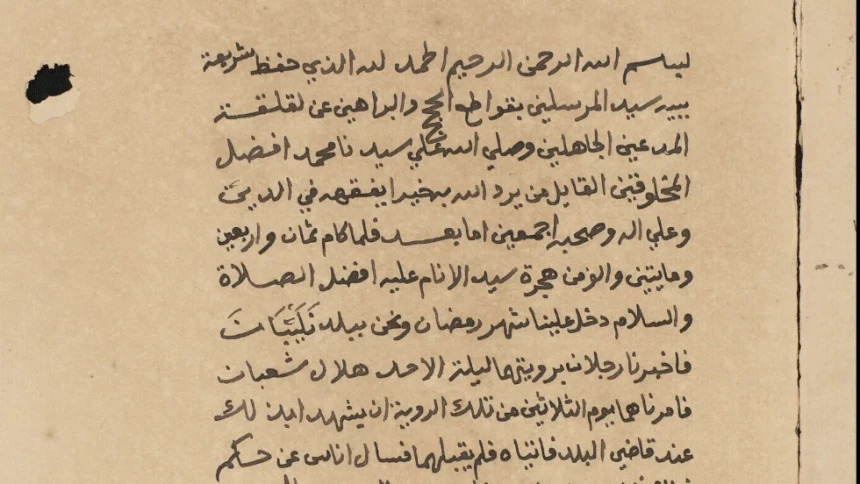 لبسم الله الرحمن الرحيم الحمد لله الذي حفظ شريعة
سيد المرسلين بقواطع الحجج والبراهين عن لقلقة
المدعين الجاهلين وصلي الله علي سيدنا محمد افضل
المخلوقين القايل من يرد الله به خيرا يفقهه في الدين
وعلي اله وصحبه اجمعين اما بعد فلما كام ثمان واربعين
ومايتين والف من هجرة سيد الانام عليه افضل الصلاة
والسلام دخل علينا شهر رمضان ونحن ببلد
فاخبرنا رجلان برويتهما ليلة الاحد هلال شعبان
فامرناهما يوم الثلاثين من تلك الروية ان يشهدا بذلك
عند قاضي البلد فاتياه فلم يقبلهما فسال اناس عن حكم